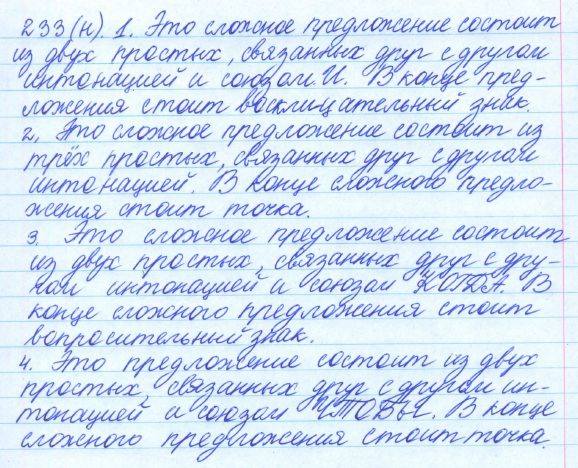 233(н). 1. Это сложное предложение состоит
из двух простых, связанных друг с другом
интонацией и союзом И. В конце пред-
ложения стоит восклицательный знак.
2. Это сложное предложение состоит из
трёх простых, связанных друг с другом
интонацией. В конце сложного предло-
жения стоит точка.
3. Это сложное предложение состоит
из двух простых, связанных друг с дру-
гом интонацией и союзом КОГДА. В
конце сложного предложения стоит
вопросительный знак.
4. Это предложение состоит из двух
простых, связанных друг с другом ин-
тонацией и союзом ЧТОБЫ. В конце
сложного предложения стоит точка.